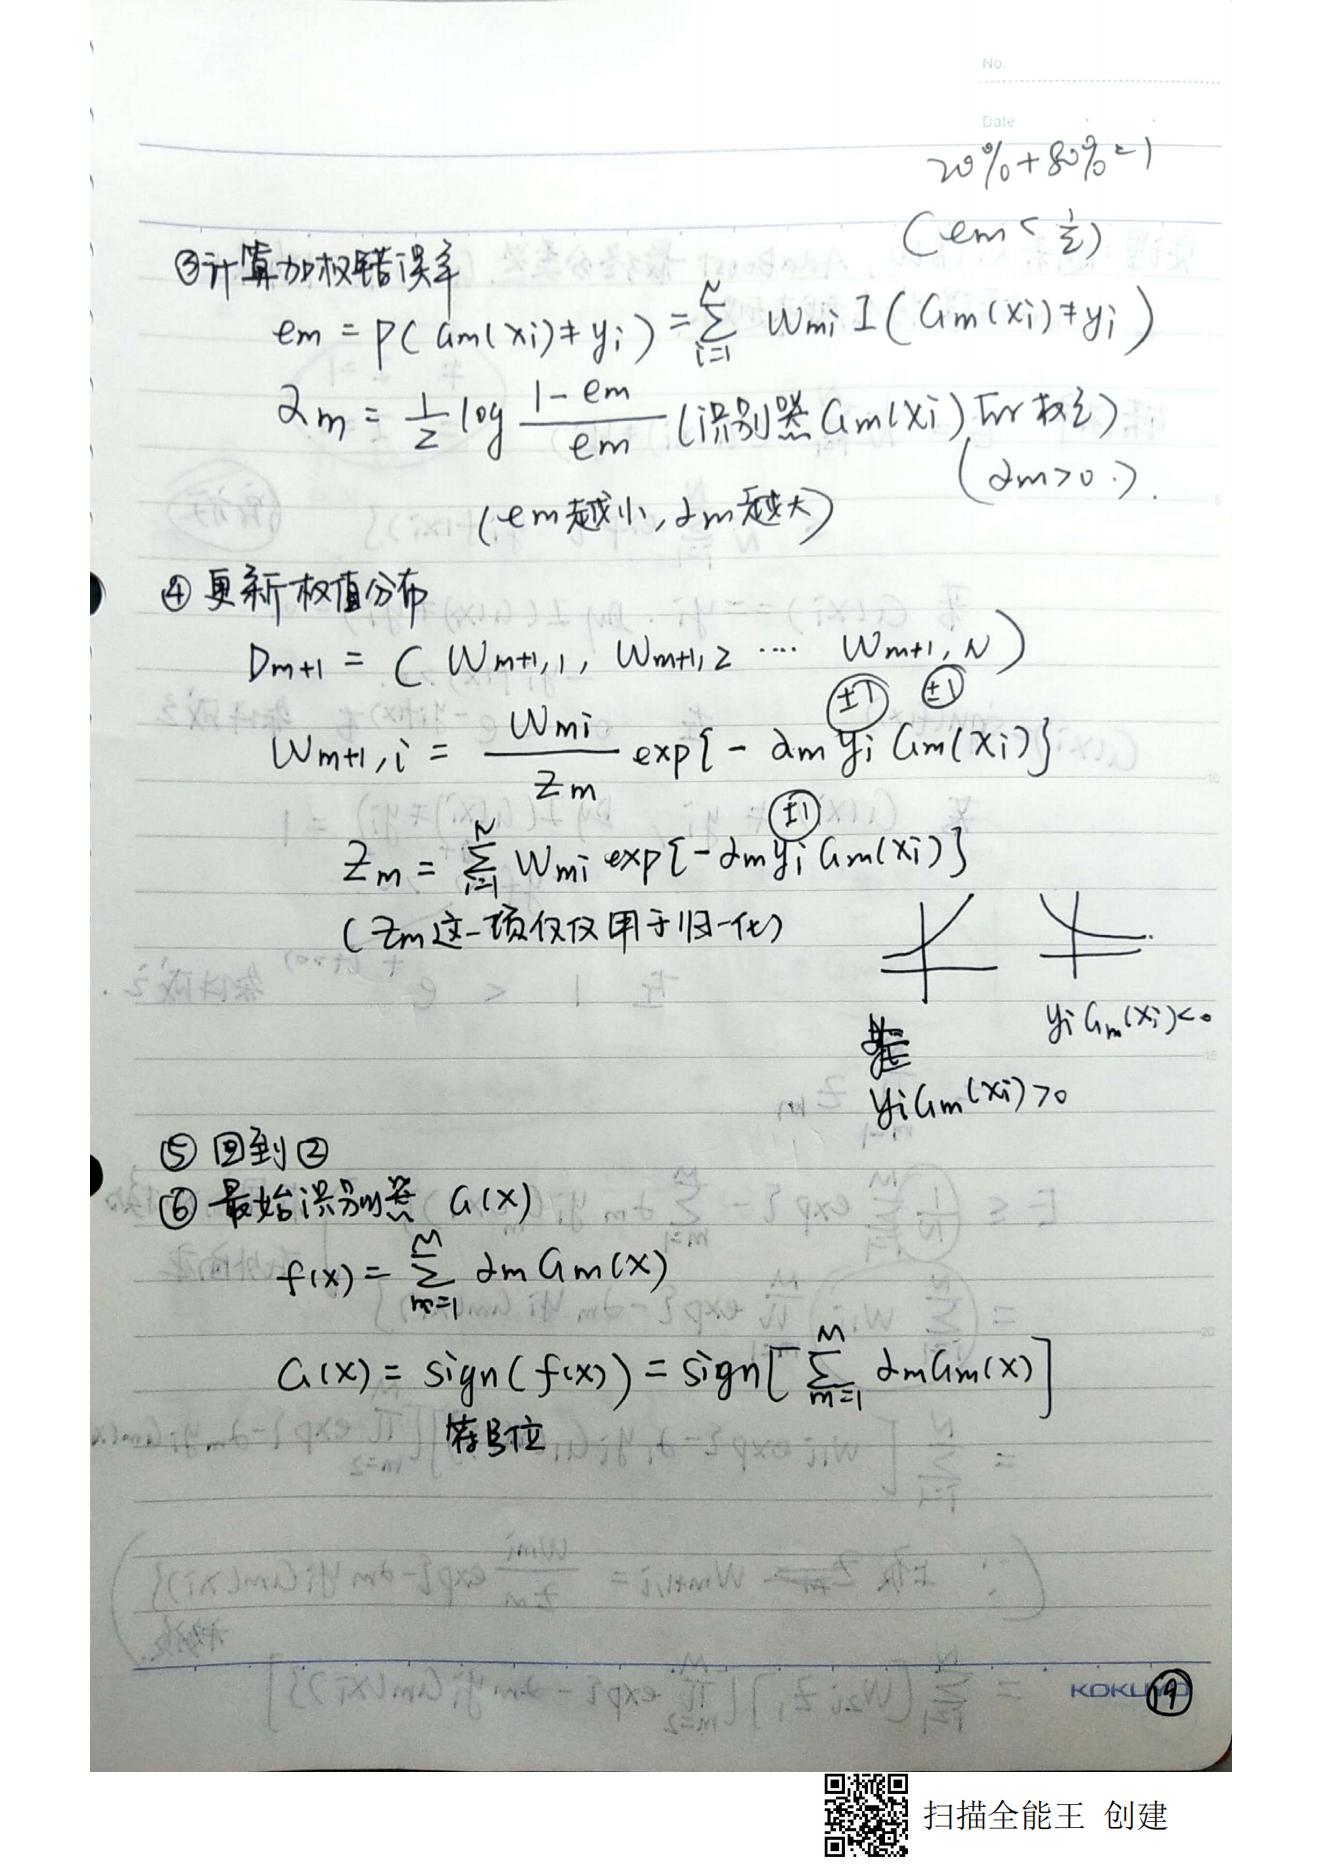 No.
Date
20%+80%=1
(em < 1/2)
③计算加权错误率
em = P(Gm(xi)≠yi) = Σ_{i=1}^{N} Wmi I(Gm(xi)≠yi)
αm = 1/2 log (1-em)/em (识别器Gm(xi)的权重)
(αm>0.)
(em越小,αm越大)
④更新权值分布
Dm+1 = (Wm+1,1, Wm+1,2 ···· Wm+1,N)
±1 ±1
Wm+1,i = Wmi/Zm exp{-αm yi Gm(xi)}
±1
Zm = Σ_{i=1}^{N} Wmi exp{-αm yi Gm(xi)}
(Zm这一项仅仅用于归一化)
yiGm(xi)<0
yiGm(xi)>0
⑤回到②
⑥最始识别器 G(x)
f(x) = Σ_{m=1}^{M} αm Gm(x)
G(x) = sign(f(x)) = sign[Σ_{m=1}^{M} αmGm(x)]
符号位
KOKUYO
⑲
扫描全能王 创建